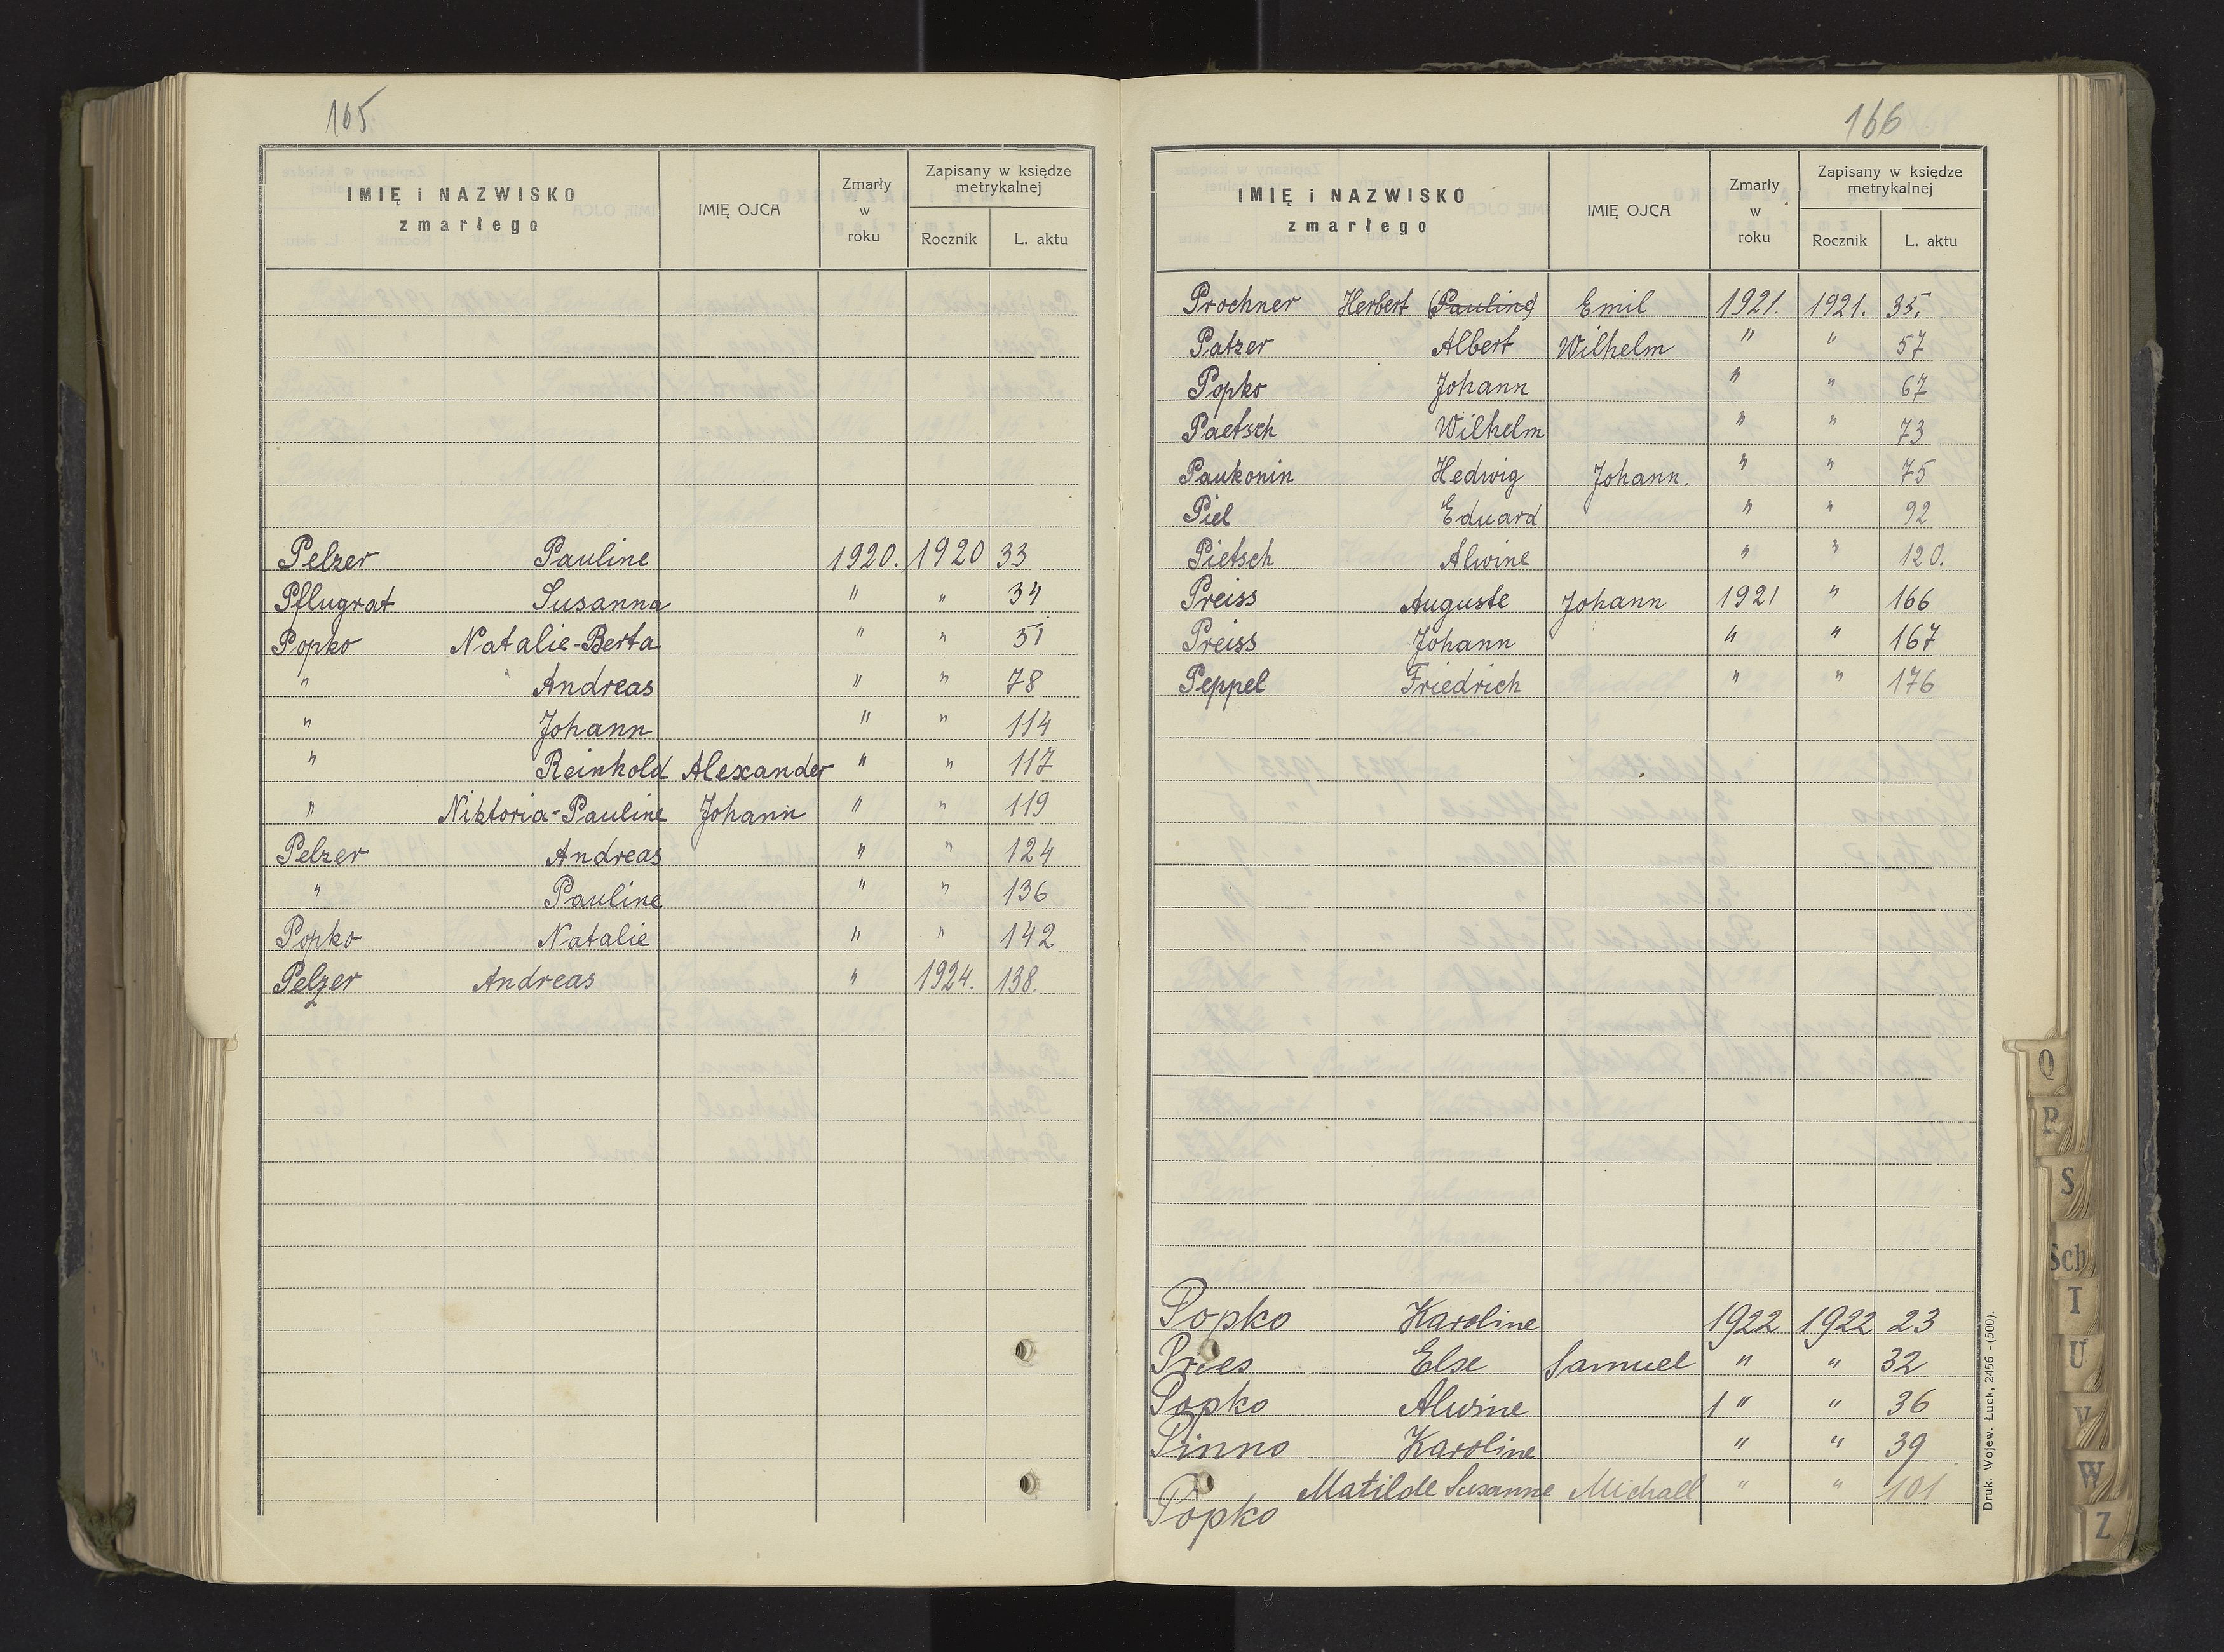 165
IMIĘ i NAZWISKO zmarłego IMIĘ OJCA Zmarły w roku Zapisany w księdze metrykalnej Rocznik L. aktu
Pelzer Pauline 1920. 1920 33
Pflugrat Susanna " " 34
Popko Natalie-Berta " " 51
" Andreas " " 78
" Johann " " 114
" Reinhold Alexander " " 117
" Niktoria-Pauline Johann " " 119
Pelzer Andreas " " 124
" Pauline " " 136
Popko Natalie " " 142
Pelzer Andreas " 1924. 138.
166
IMIĘ i NAZWISKO zmarłego IMIĘ OJCA Zmarły w roku Zapisany w księdze metrykalnej Rocznik L. aktu
Prochner Herbert (Pauline) Emil 1921. 1921. 35.
Patzer Albert Wilhelm " " 57
Popko Johann " " 67
Paetsch Wilhelm " " 73
Paukonin Hedwig Johann. " " 75
Piel Eduard " " 92
Pietsch Alwine " " 120.
Preiss Auguste Johann 1921 " 166
Preiss Johann " " 167
Peppel Friedrich " " 176
Popko Karoline 1922 1922 23
Pries Else Samuel " " 32
Popko Alwine 1 " " 36
Pinno Karoline " " 39
Popko Matilde Susanne Michael " " 101
Druk. Wojew. Łuck, 2456 - (500).
Q
P
S
Sch
T
U
V
W
Z